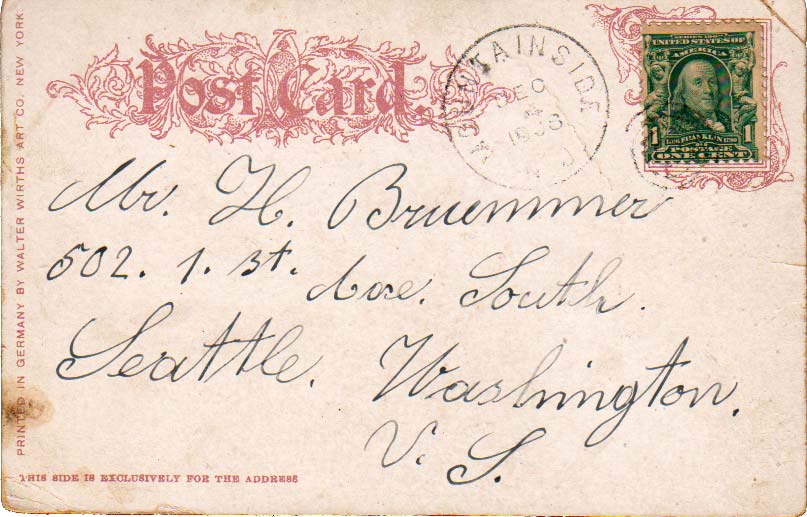 Post Card
MOUNTAINSIDE
DEC
4
N.J.
SERIES 1902
UNITED STATES OF
AMERICA
1 1
POSTAGE
ONE CENT
Mr. H. Bruemmer
502. 1. St. Ave. South.
Seattle. Washington.
U. S.
THIS SIDE IS EXCLUSIVELY FOR THE ADDRESS
PRINTED IN GERMANY BY WALTER WIRTHS ART CO. NEW YORK.